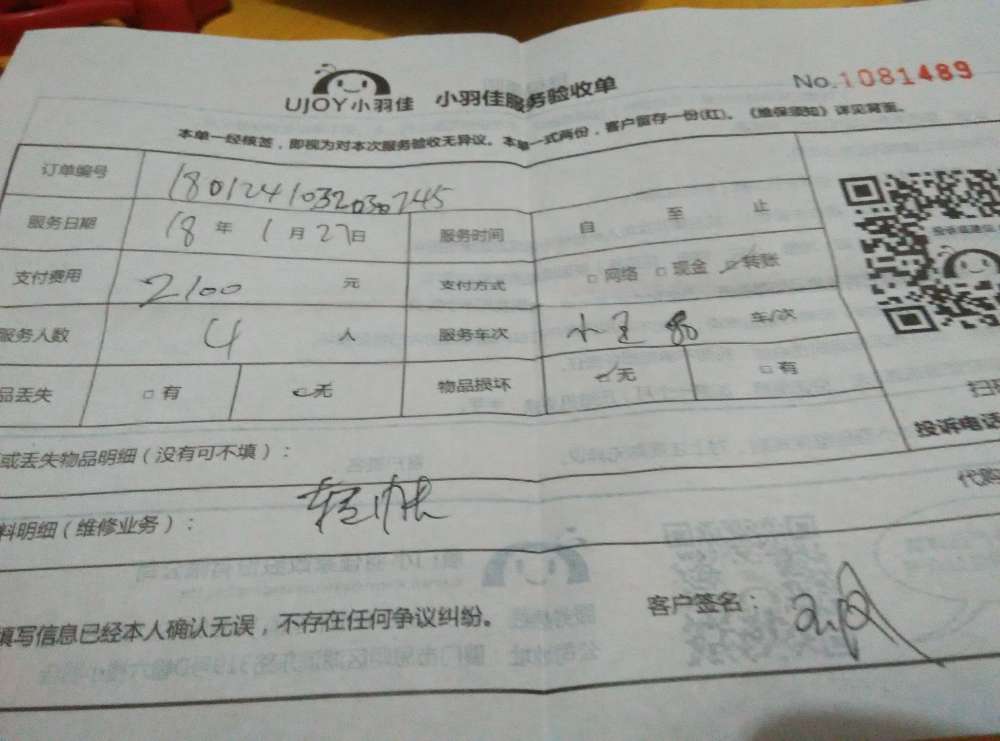 UJOY小羽佳 小羽佳服务验收单 No.1081489
本单一经核签，即视为对本次服务验收无异议。本单一式两份，客户留存一份(红)。《维保须知》详见背面。
订单编号 1801241032030245
服务日期 18年1月27日 服务时间 自 至 止
支付费用 2100 元 支付方式 □网络 □现金 ☑转账
服务人数 4 人 服务车次 车/次
品丢失 □有 ☑无 物品损坏 ☑无 □有
或丢失物品明细（没有可不填）：
料明细（维修业务）： 转帐
填写信息已经本人确认无误，不存在任何争议纠纷。 客户签名：
投诉或建议
扫
投诉电话
代购